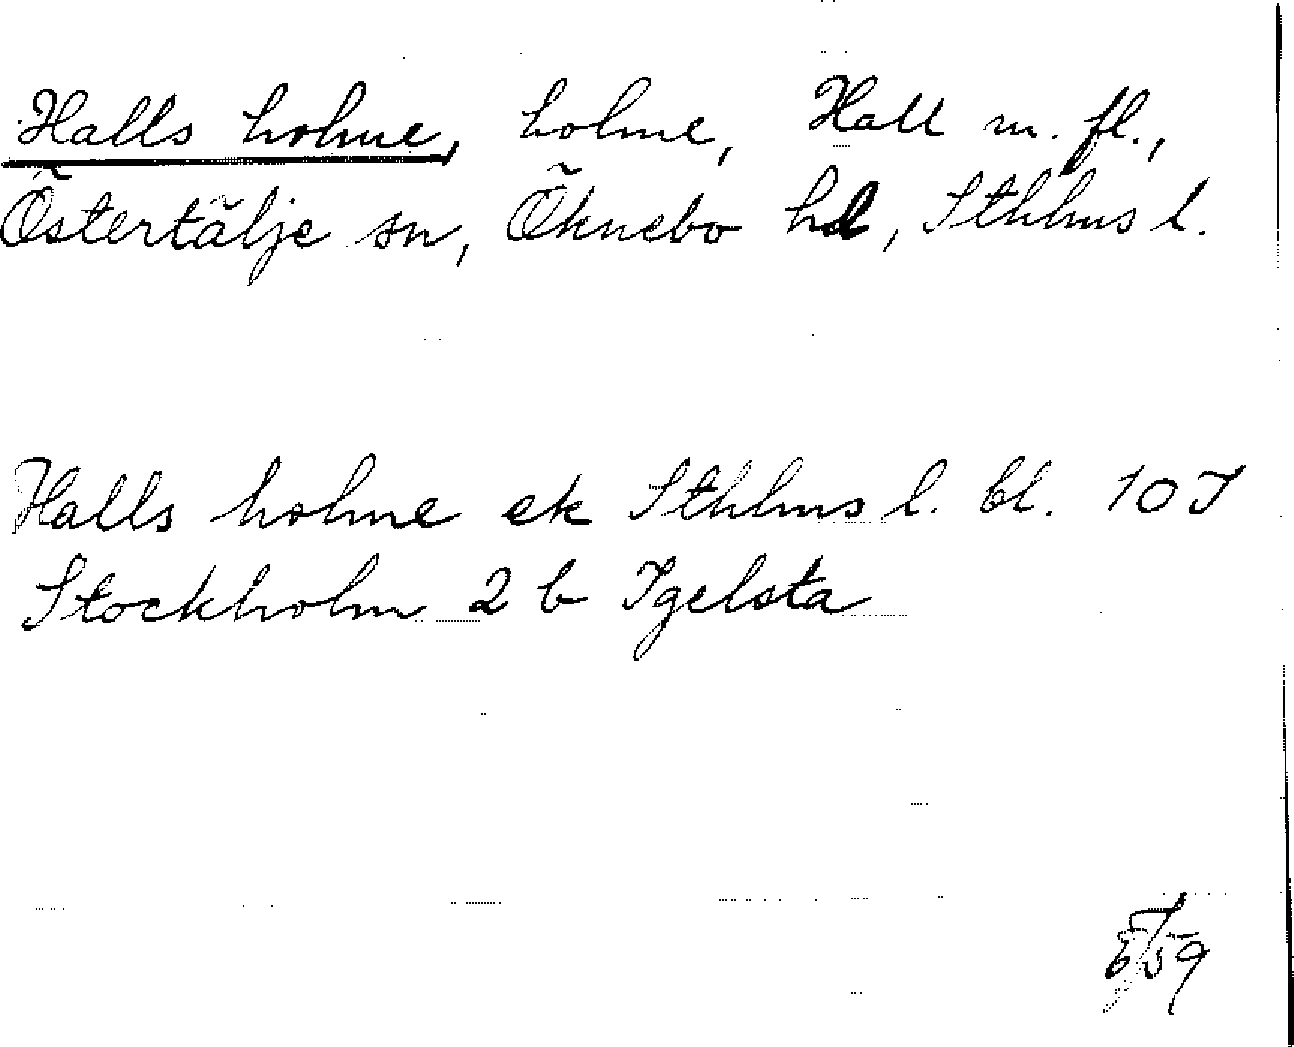 Halls holme, holme, Hall m. fl.,
Östertälje sn, Öknebo hd, Sthlms l.
Halls holme ek Sthlms l. bl. 107
Stockholm 2 b Igelsta